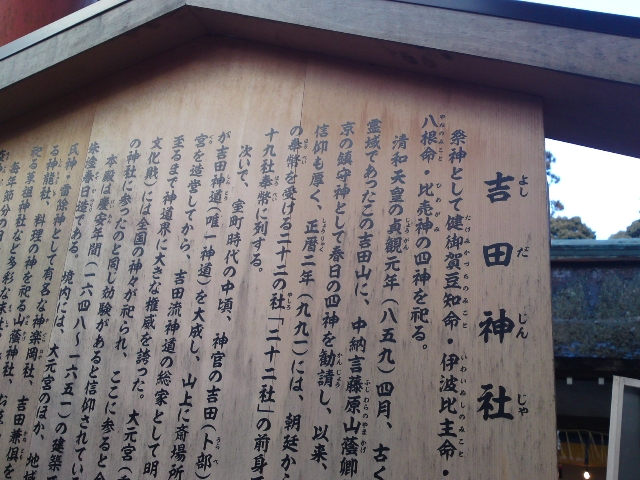 吉田神社
よしだじんじゃ
祭神として健御賀豆知命・伊波比主命・
八根命・比売神の四神を祀る。
清和天皇の貞観元年（八五九）四月、古く
霊域であったこの吉田山に、中納言藤原山蔭卿
京の鎮守神として春日の四神を勧請し、以来、
信仰も厚く、正暦二年（九九一）には、朝廷か
の奉幣を受ける二十二の社「二十二社」の前身
十九社奉幣に列する。
次いで、室町時代の中頃、神官の吉田（卜部）
が吉田神道（唯一神道）を大成し、山上に斎場所
宮を造営してから、吉田流神道の総家として明
至るまで神道界に大きな権威を誇った。大元宮（
文化財）には全国の神々が祀られ、ここに参ると全
の神社に参ったのと同じ効験があると信仰されてい
本殿は慶安年間（一六四八〜一六五一）の建築
朱塗春日造である。境内には、大元宮のほか、地域
氏神・雷除神として有名な神楽岡社、吉田兼倶を
る神龍社、料理の神を祀る山蔭神社、お菓
祀る菓祖神社など多彩な末社
毎年節分の日